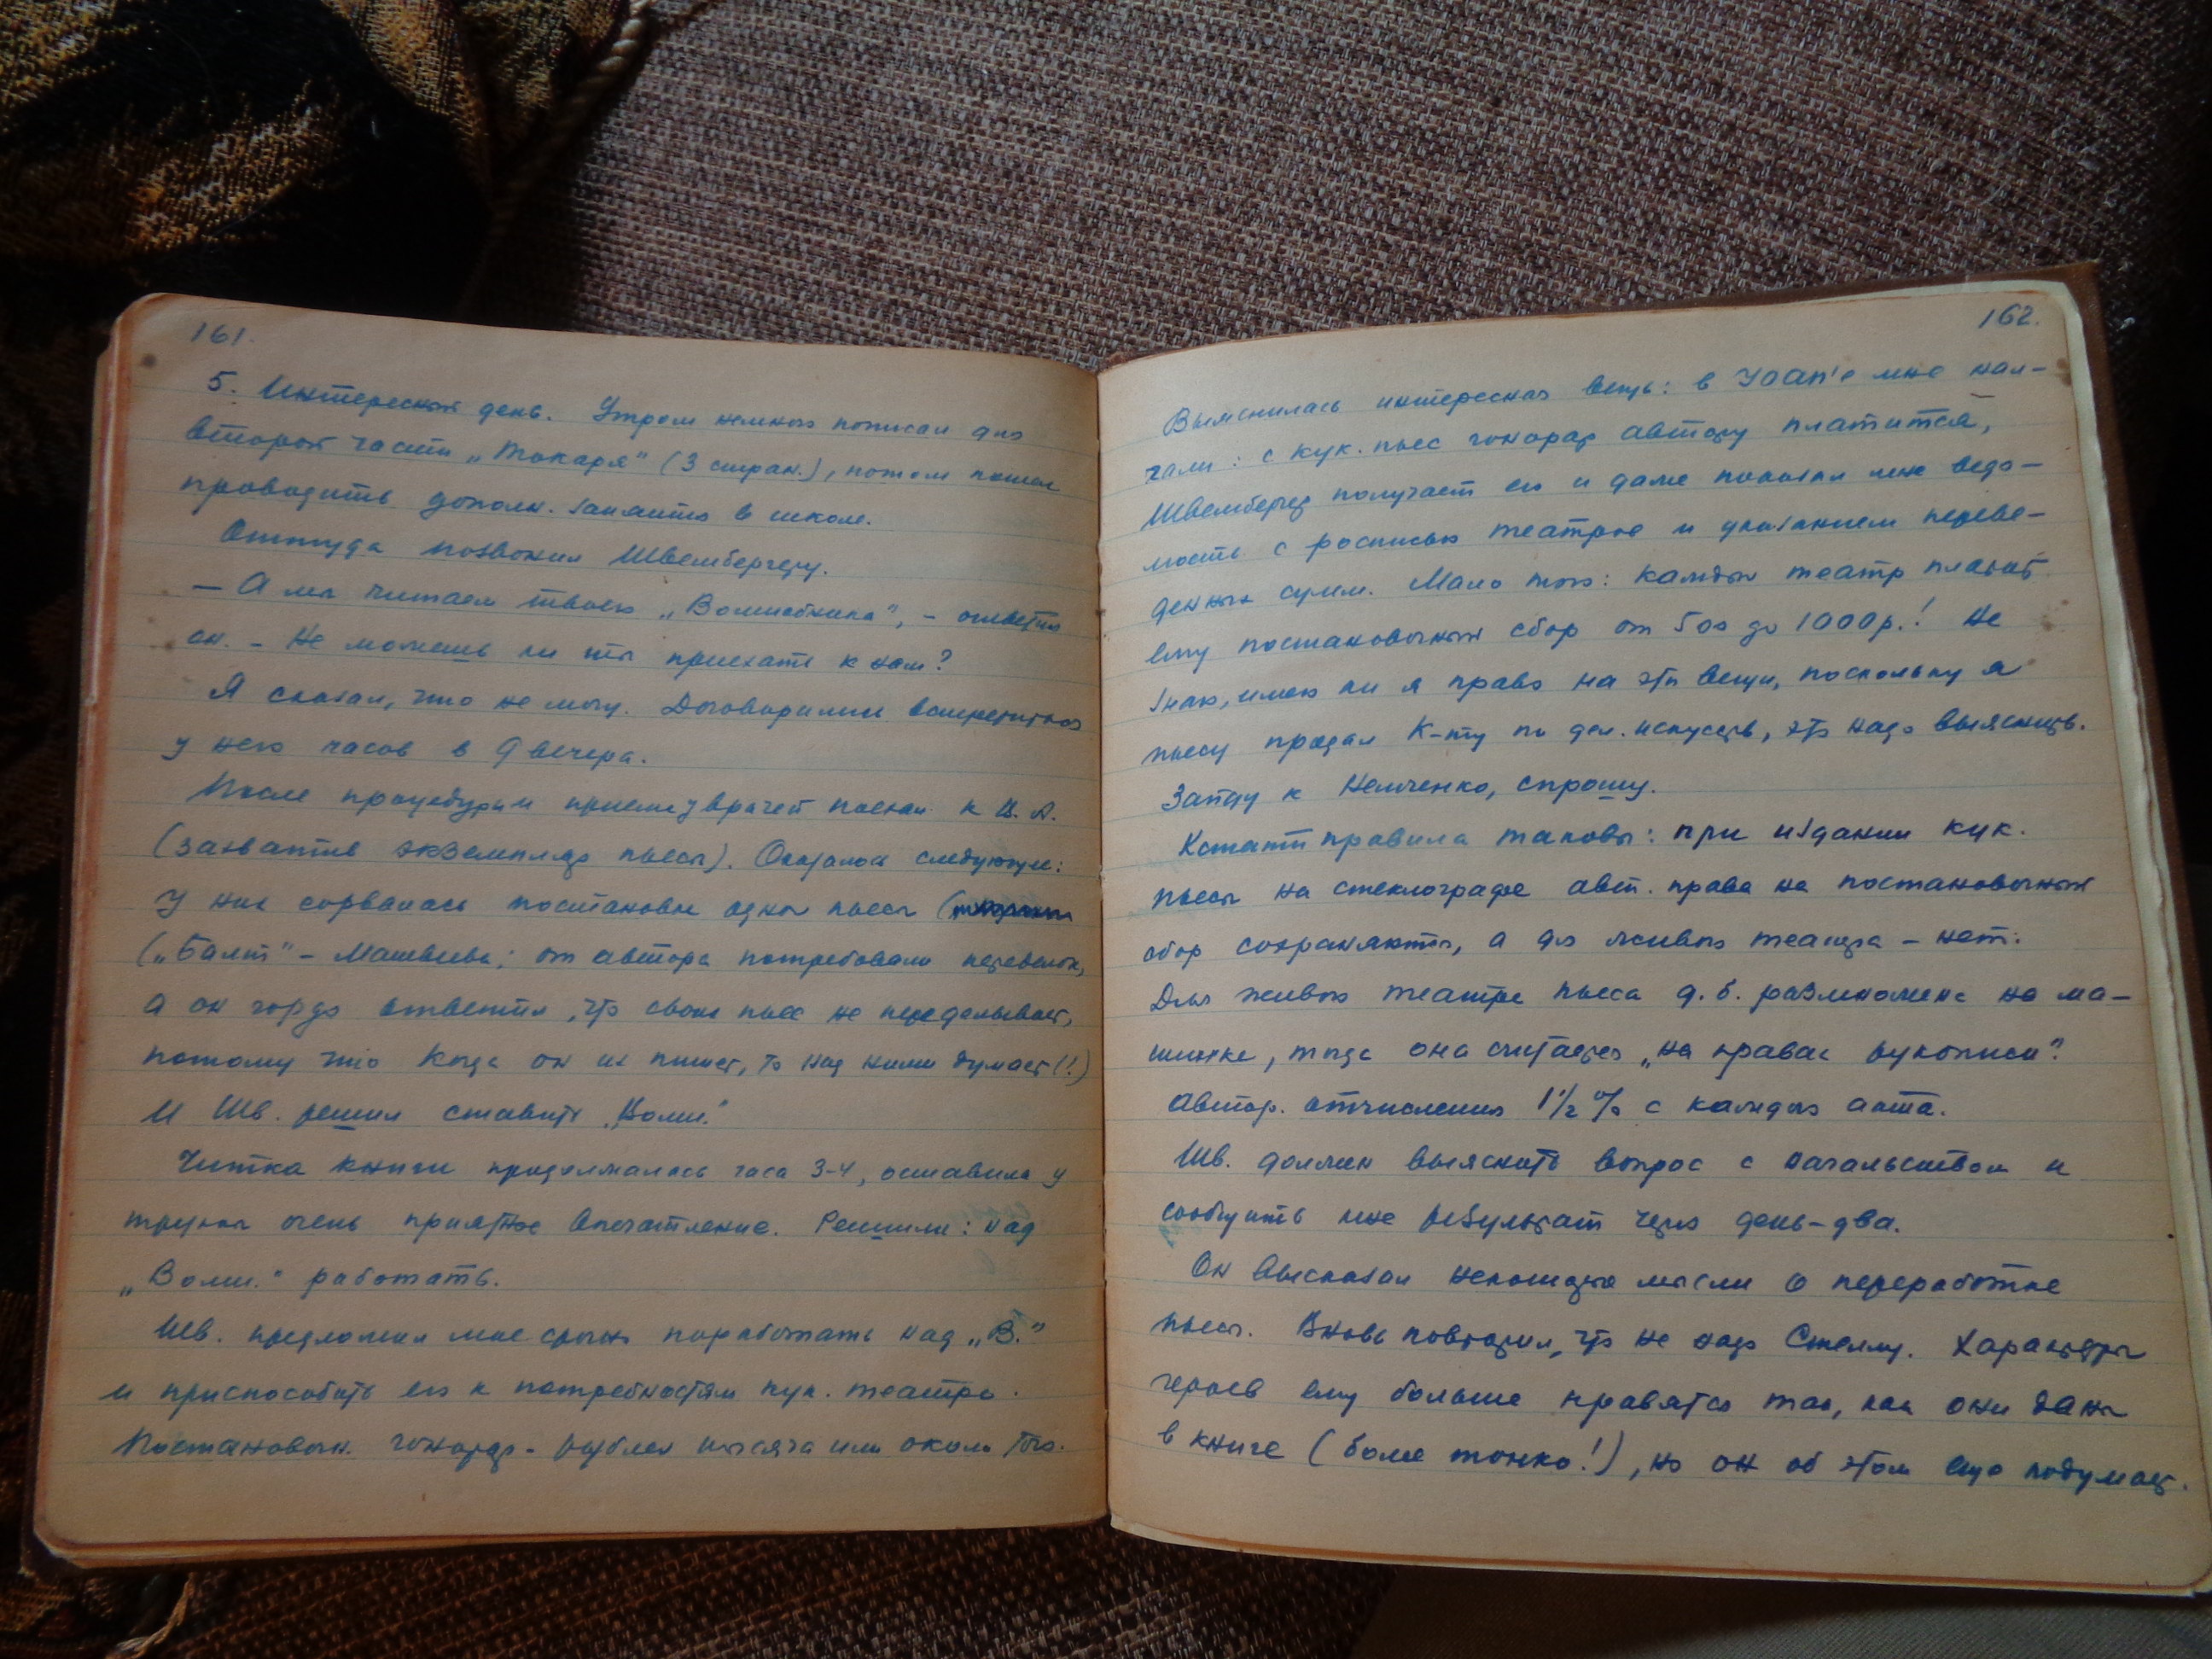 161.
5. Интересный день. Утром немного пописал для
второй части „Токаря" (3 стран.), потом пошел
проводить дополн. занятия в школе.
Оттуда позвонил Швембергеру.
— А мы читаем твоего „Волшебника", - ответил
он. - Не можешь ли ты приехать к нам?
Я сказал, что не могу. Договорились встретиться
у него часов в 9 вечера.
После процедур и приема у врачей поехал к В. А.
(захватив экземпляр пьесы). Оказалось следующее:
У них сорвалась постановка одной пьесы
(„Балт" - Матвеева; от автора потребовали переделок,
а он гордо ответил, что своих пьес не переделывает,
потому что когда он их пишет, то над ними думает (!)
И Шв. решил ставить „Волш."
Читка книги продолжалась часа 3-4, оставила у
труппы очень приятное впечатление. Решили: над
„Волш." работать.
Шв. предложил мне срочно поработать над „В."
и приспособить его к потребностям кук. театра.
Постановочн. гонорар - рублей тысяча или около того.
162.
Выяснилась интересная вещь: в УОАП'е мне нал-
гали: с кук. пьес гонорар автору платится,
Швембергер получает его и даже показал мне ведо-
мость с росписью театров и указанием переве-
денных сумм. Мало того: каждый театр платит
ему постановочный сбор от 500 до 1000 р.! Не
знаю, имею ли я право на эти вещи, поскольку я
пьесу продал К-ту по дел. искусств, это надо выяснить.
Зайду к Немченко, спрошу.
Кстати правила таковы: при издании кук.
пьесы на стеклографе авт. права на постановочный
сбор сохраняются, а для живого театра - нет.
Для живого театра пьеса д. б. размножена на ма-
шинке, тогда она считается „на правах рукописи".
Автор. отчисления 1½% с каждого акта.
Шв. должен выяснить вопрос с начальством и
сообщить мне результат через день-два.
Он высказал некоторые мысли о переработке
пьесы. Вновь повторил, что не надо Стеллу. Характеры
героев ему больше нравятся так, как они даны
в книге (более тонко!), но он об этом еще подумает.